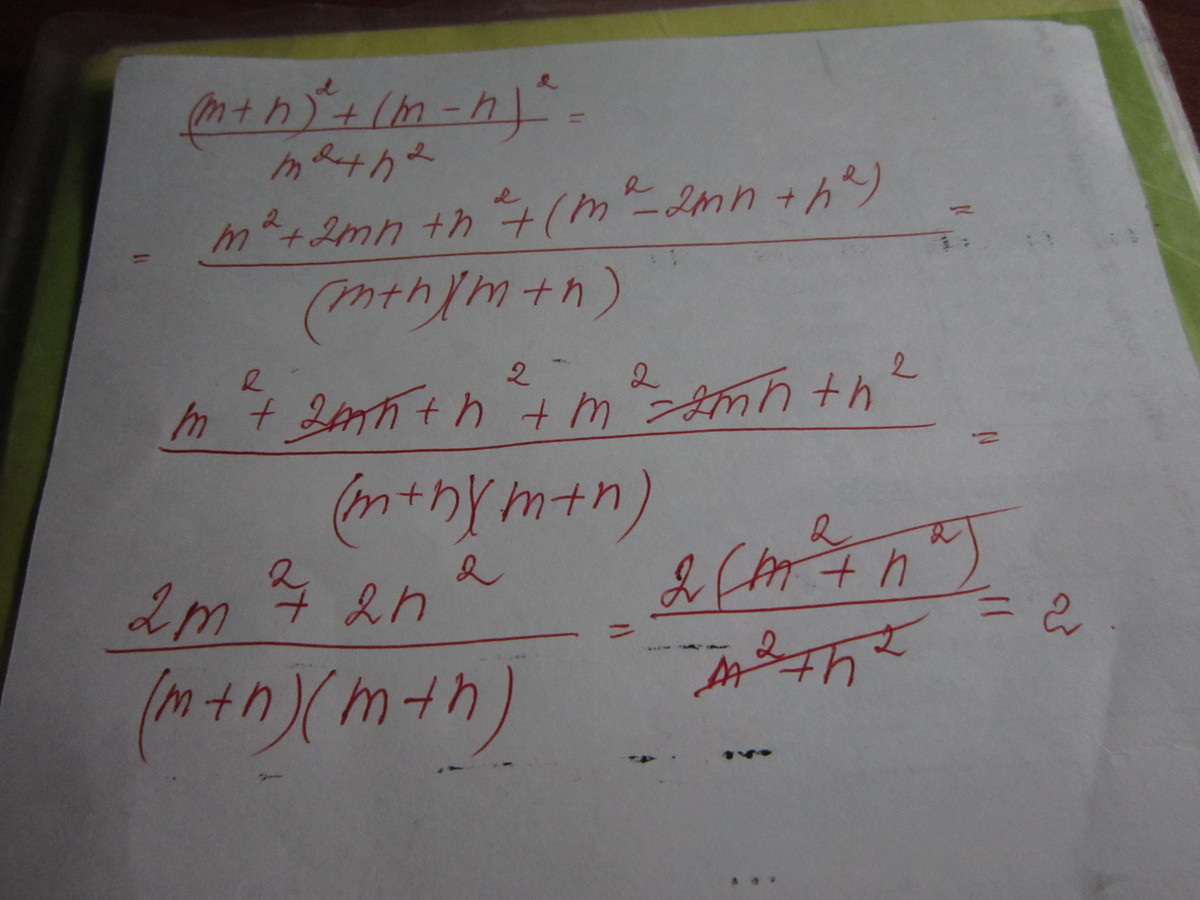 (m+n)²+(m-n)² / m²+n² =
= m²+2mn+n²+(m²-2mn+n²) / (m+n)(m+n) =
m²+2mn+n²+m²-2mn+n² / (m+n)(m+n) =
2m²+2n² / (m+n)(m+n) = 2(m²+n²) / m²+n² = 2.